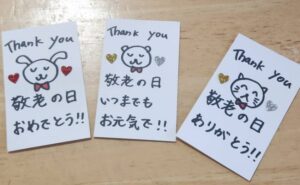 Thank you
敬老の日
おめでとう!!
Thank you
敬老の日
いつまでも
お元気で!!
Thank you
敬老の日
ありがとう!!